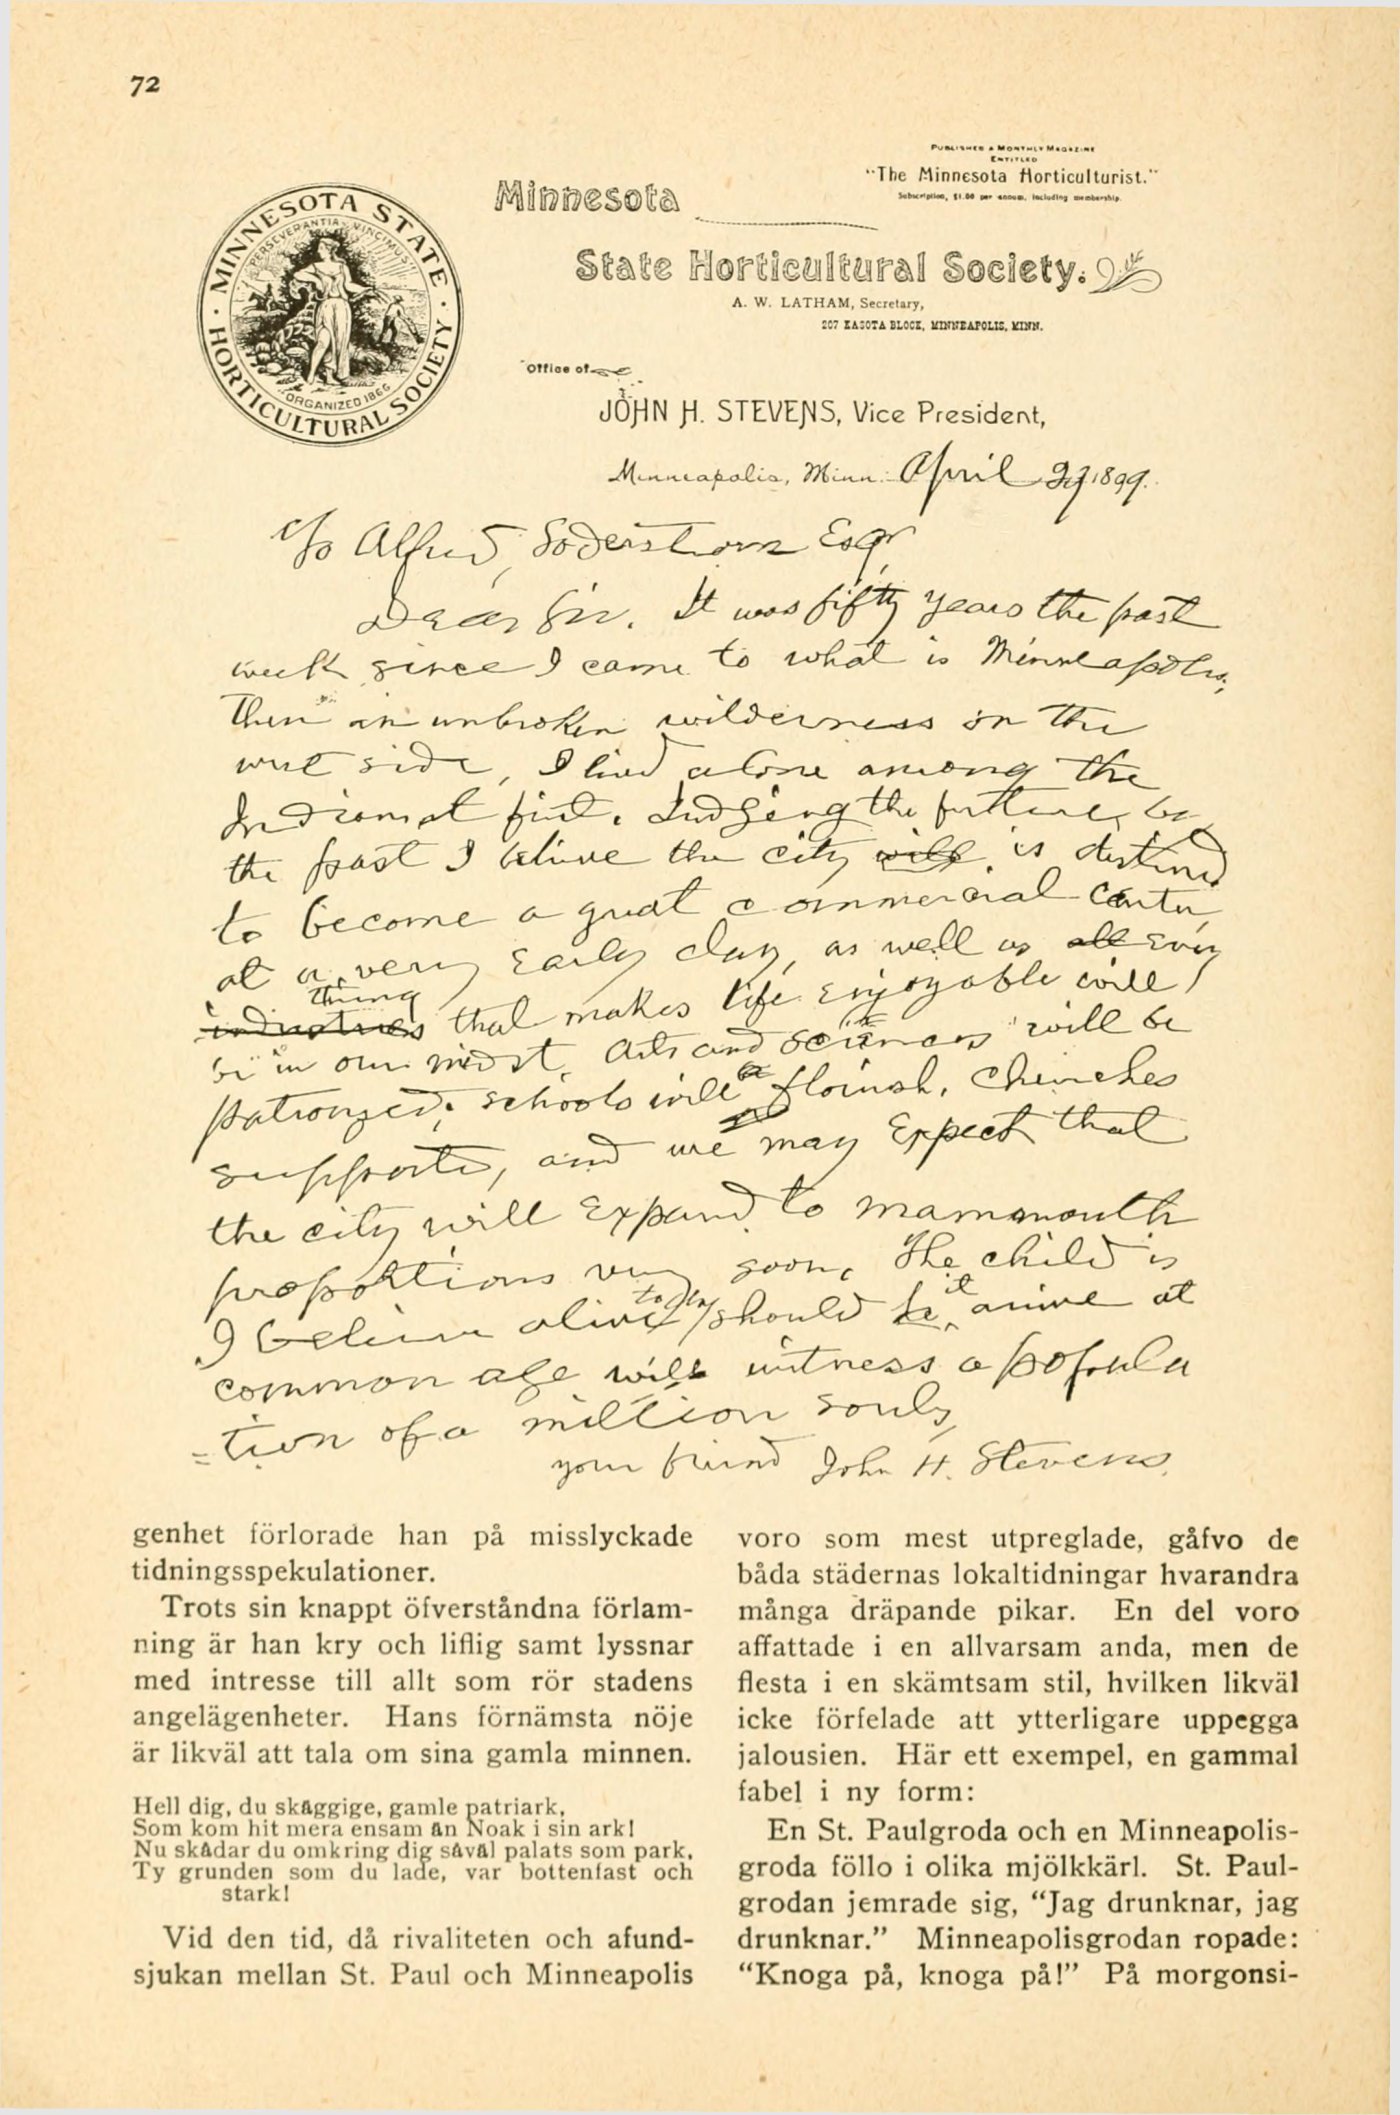 72
PUBLISHES A MONTHLY MAGAZINE
ENTITLED
"The Minnesota Horticulturist."
Subscription, $1.00 per annum, including membership.
Minnesota
State Horticultural Society.
A. W. LATHAM, Secretary,
207 KASOTA BLOCK, MINNEAPOLIS, MINN.
MINNESOTA STATE
HORTICULTURAL SOCIETY
PERSEVERANTIA VINCIMUS
ORGANIZED 1866
Office of
JOHN H. STEVENS, Vice President,
Minneapolis, Minn. April 1899.
To Alfred Soderstrom Esqr
Dear Sir. It was fifty years the past
week since I came to what is Minneapolis,
Then an unbroken wilderness on the
west side, I lived alone among the
Indians at first. Judging the future by
the past I believe the city will is destined
to become a great commercial center
at a very early day, as well as all every
thing
industries that makes life enjoyable will
be in our midst. Arts and sciences will be
patronized, schools will flourish. Churches
supported, and we may expect that
the city will expand to mammouth
proportions very soon. The child is
I believe alive to day should he it arrive at
common age will witness a popula
=tion of a million souls,
your friend John H. Stevens.
genhet förlorade han på misslyckade
tidningsspekulationer.
Trots sin knappt öfverståndna förlam-
ning är han kry och liflig samt lyssnar
med intresse till allt som rör stadens
angelägenheter. Hans förnämsta nöje
är likväl att tala om sina gamla minnen.
Hell dig, du skäggige, gamle patriark,
Som kom hit mera ensam än Noak i sin ark!
Nu skådar du omkring dig såväl palats som park,
Ty grunden som du lade, var bottenfast och
stark!
Vid den tid, då rivaliteten och afund-
sjukan mellan St. Paul och Minneapolis
voro som mest utpreglade, gåfvo de
båda städernas lokaltidningar hvarandra
många dräpande pikar. En del voro
affattade i en allvarsam anda, men de
flesta i en skämtsam stil, hvilken likväl
icke förfelade att ytterligare uppegga
jalousien. Här ett exempel, en gammal
fabel i ny form:
En St. Paulgroda och en Minneapolis-
groda föllo i olika mjölkkärl. St. Paul-
grodan jemrade sig, “Jag drunknar, jag
drunknar.” Minneapolisgrodan ropade:
“Knoga på, knoga på!” På morgonsi-